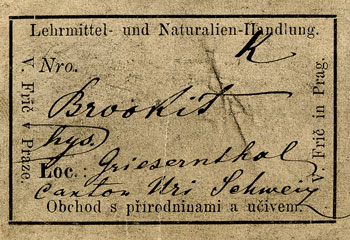 Lehrmittel- und Naturalien-Handlung.
K
Nro.
Brookit
hys.
Loc.: Griesernthal
Canton Uri Schweiz
Obchod s přírodninami a učivem.
V. Frič v Praze.
V. Frič in Prag.